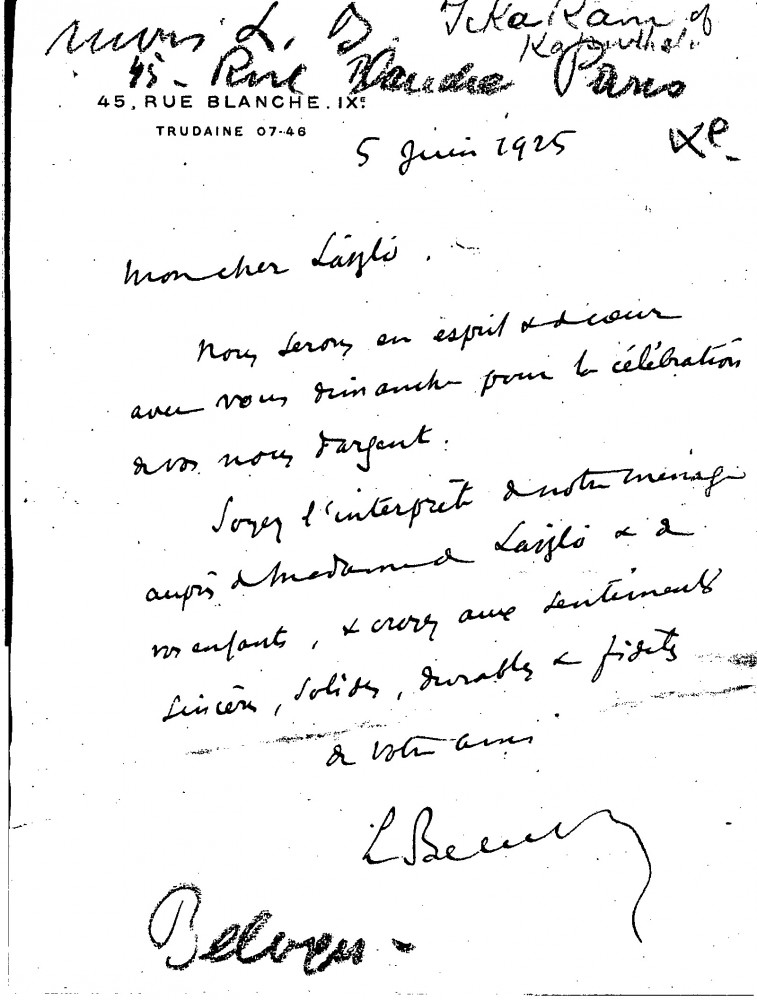 L. B. Tikka Rani of
Kapurthala
45 - Rue Blanche Paris
45, RUE BLANCHE. IXE
TRUDAINE 07-46
IXe
5 juin 1925
Mon cher László.
Nous serons en esprit & de cœur
avec vous dimanche pour la célébration
de vos noces d'argent.
Soyez l'interprète de notre ménage
auprès de Madame de László & de
vos enfants, & croyez aux sentiments
sincères, solides, durables & fidèles
de votre ami
L